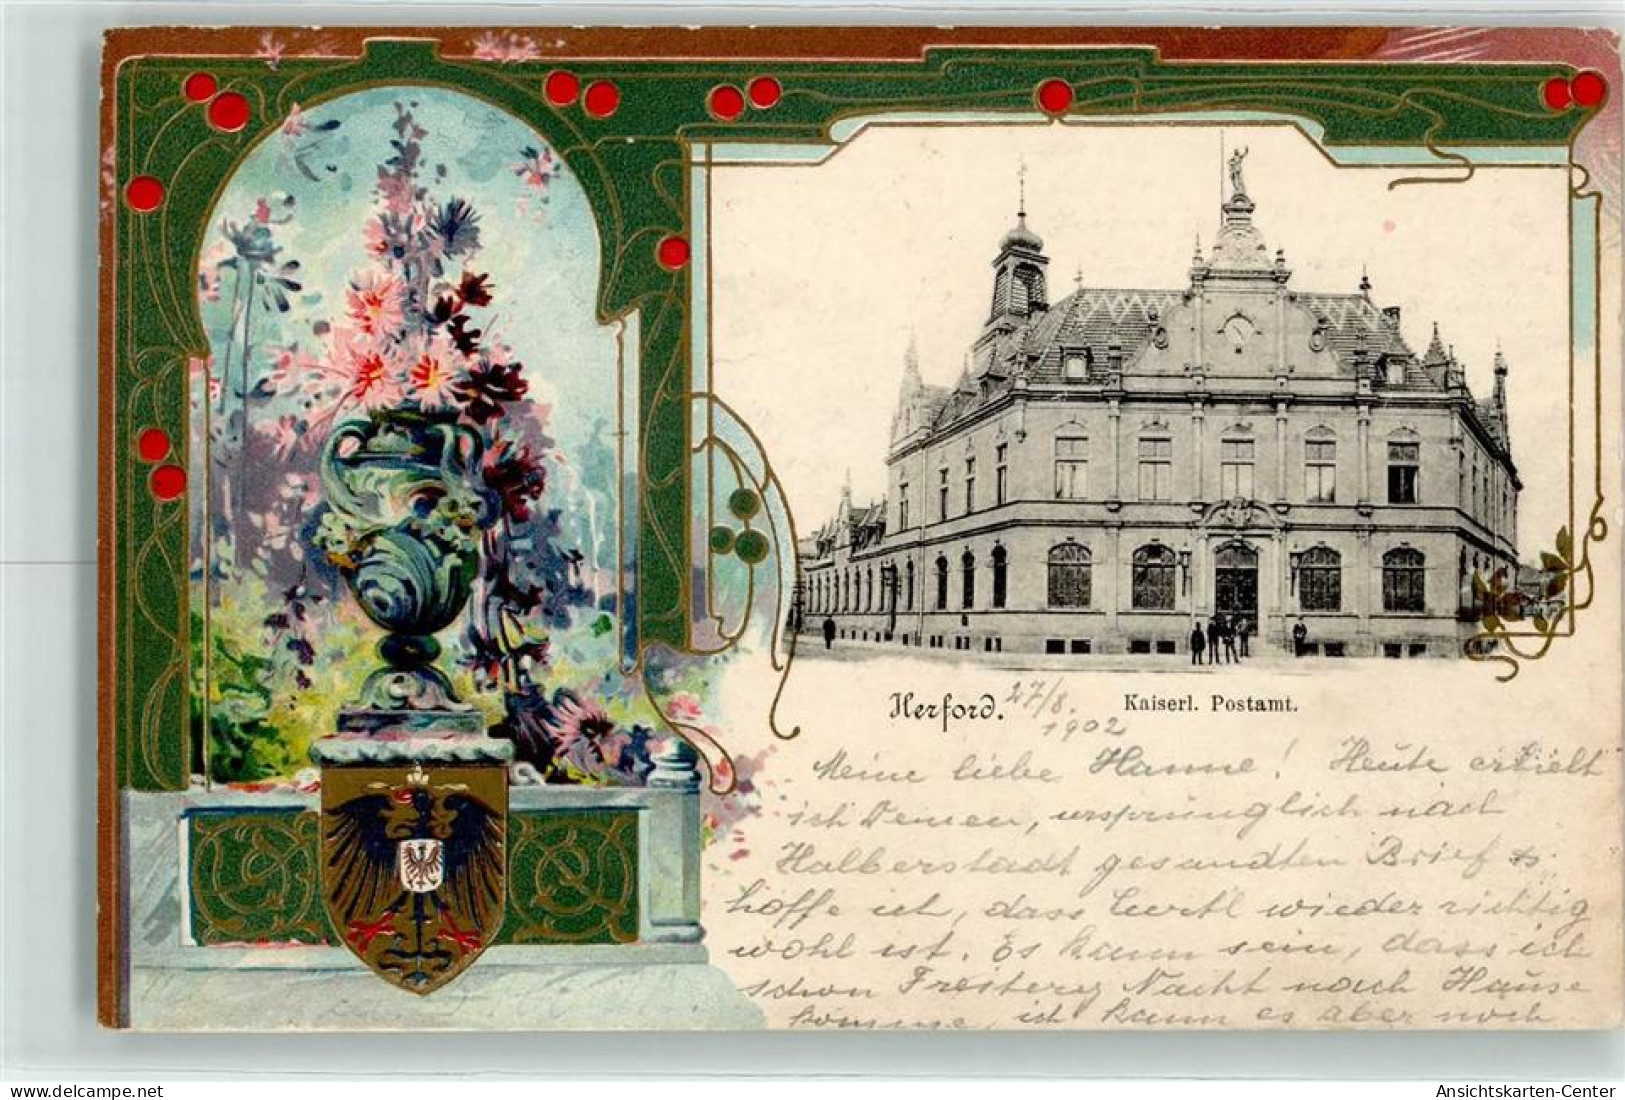 Herford. 27/8. 1902
Kaiserl. Postamt.
Meine liebe Hanne! Heute erhielt
ich Deinen, ursprünglich nach
Halberstadt gesandten Brief &
hoffe ich, dass Curtl wieder richtig
wohl ist. Es kann sein, dass ich
schon Freitag Nacht nach Hause
komme, ich kann es aber noch
delcampe.net
Ansichtskarten-Center